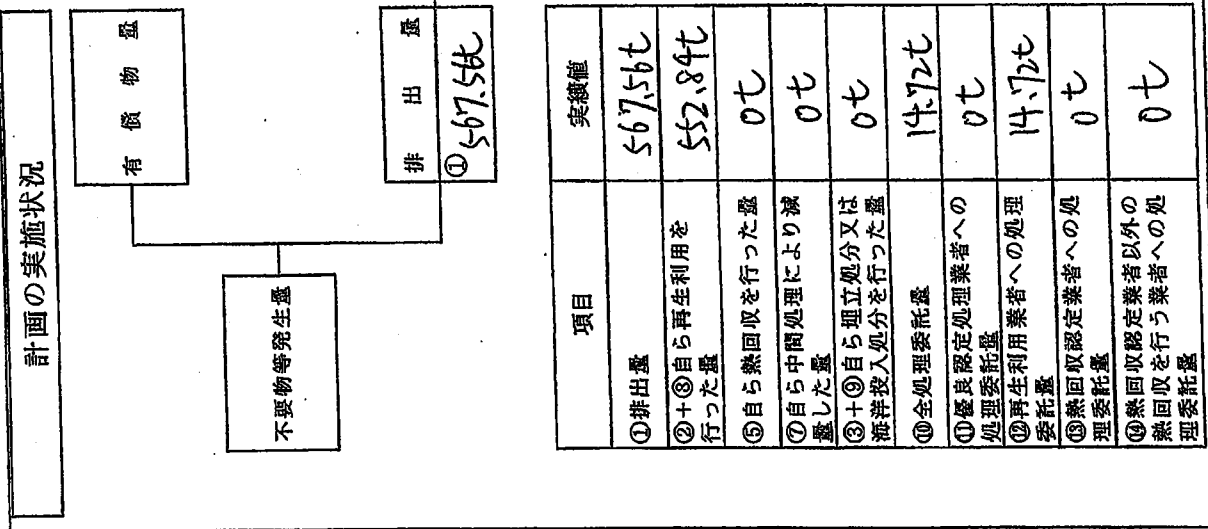 計画の実施状況
有償物量
不要物等発生量
排出量
①567.56t
項目 実績値
①排出量 567.56t
②+⑧自ら再生利用を
行った量 552.84t
⑤自ら熱回収を行った量 0t
⑦自ら中間処理により減
量した量 0t
③+⑨自ら埋立処分又は
海洋投入処分を行った量 0t
⑩全処理委託量 14.72t
⑪優良認定処理業者への
処理委託量 0t
⑫再生利用業者への処理
委託量 14.72t
⑬熱回収認定業者への処
理委託量 0t
⑭熱回収認定業者以外の
熱回収を行う業者への処
理委託量 0t